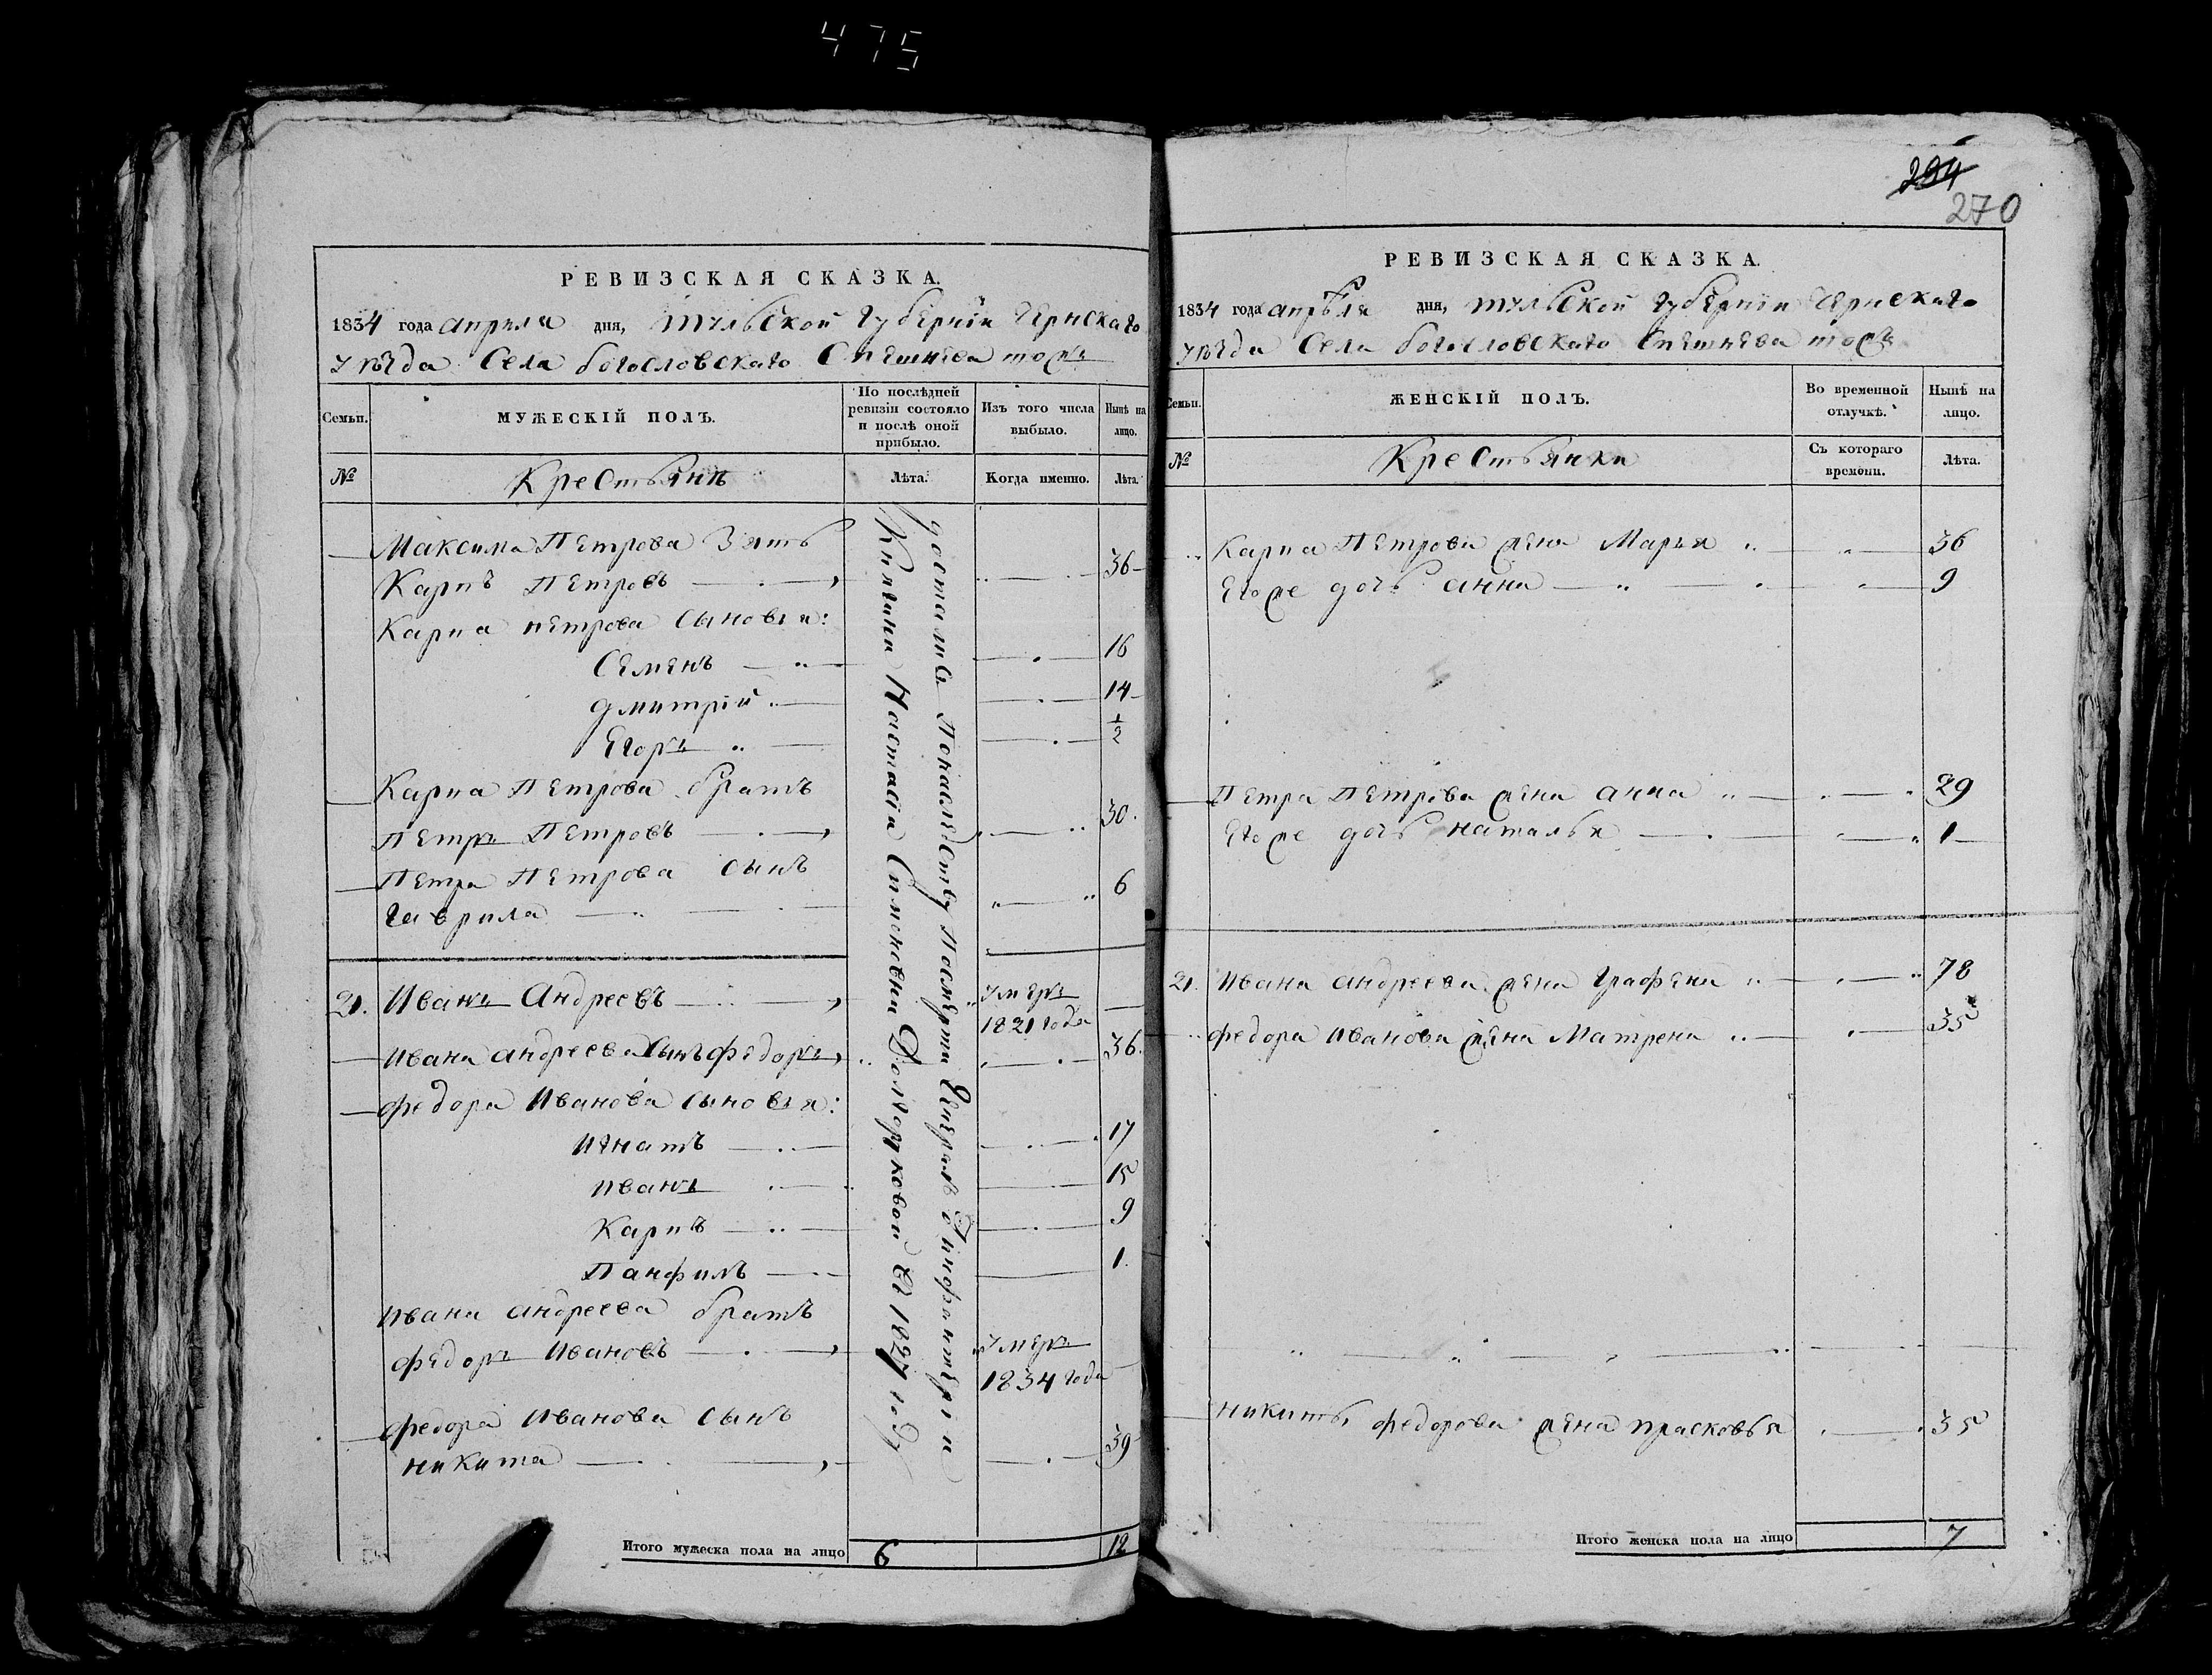 475
РЕВИЗСКАЯ СКАЗКА.
1834 года апреля дня, Тульской Губернїи Чернскаго
уѣзда Села богословскаго Спешнева тожъ
Семьи.
МУЖЕСКІЙ ПОЛЪ.
По послѣдней
ревизіи состояло
и послѣ оной
прибыло.
Изъ того числа
выбыло.
Нынѣ на
лицо.
№
Крестьянѣ
Лѣта.
Когда именно.
Лѣта.
Максима Петрова Зять
Карпъ Петровъ 36
Карпа петрова сыновья:
Семенъ 16
дмитрїй 14
Егоръ 1/2
Карпа Петрова братъ
Петръ Петровъ 30.
Петра Петрова сынъ 6
Гаврила
21. Иванъ Андреевъ умеръ
1821 года
Ивана андреева Сынъ федоръ 36.
федора Иванова сыновья:
Игнатъ 17
иванъ 15
Карпъ 9
Панфилъ 1.
ивана андреева братъ
федоръ Ивановъ умеръ
1834 года
федора Иванова сынъ
никита 39
достались Понаследству Посмерти Генералъ Инфантерїи
Княгини Настасїи Симоновны Долгоруковой въ 1827 году
Итого мужеска пола на лицо 6 12
294
270
РЕВИЗСКАЯ СКАЗКА.
1834 года апрѣля дня, Тульской Губернїи Чернскаго
уѣзда Села богословскаго Спешнева тожъ
Семьи.
ЖЕНСКІЙ ПОЛЪ.
Во временной
отлучкѣ.
Нынѣ на
лицо.
№
Крестьянки
Съ котораго
времени.
Лѣта.
Карпа Петрова жена Марья 36
Егоже дочь анна 9
Петра Петрова жена анна 29
Егоже дочь наталья 1
21. Ивана андреева жена Графена 78
федора Иванова жена Матрена 35
никиты федорова жена прасковья 35
Итого женска пола на лицо 7